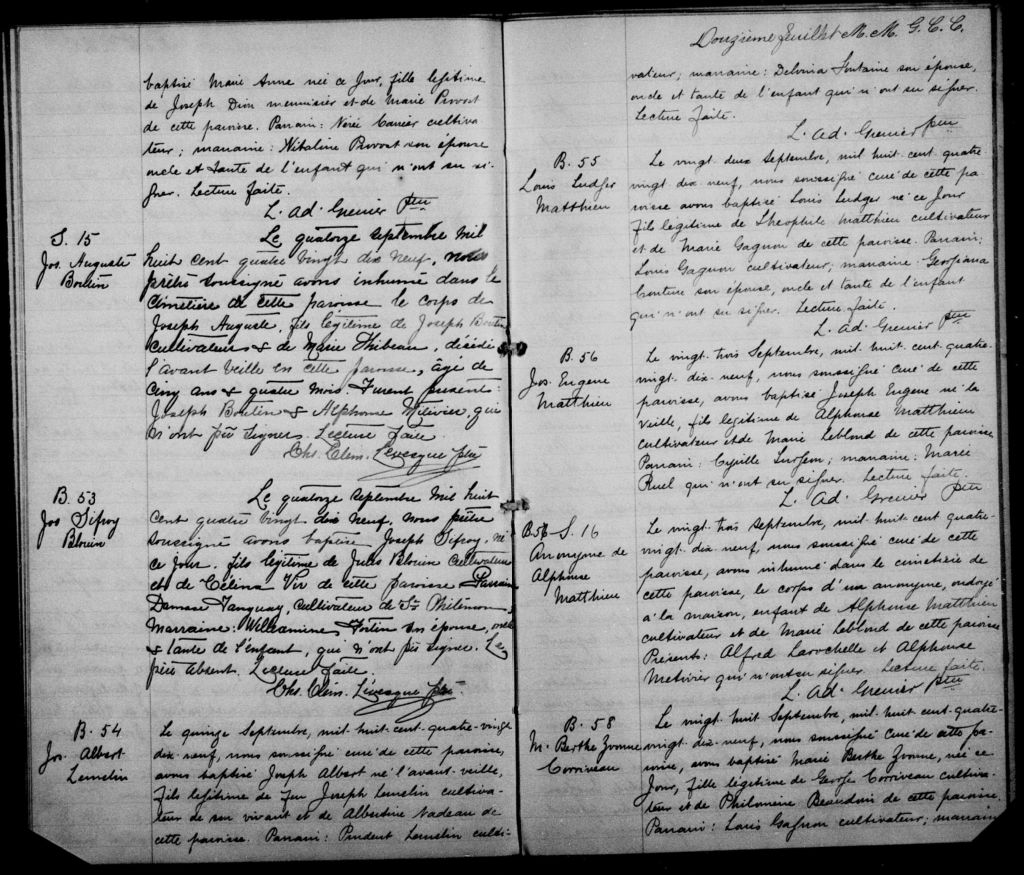 baptisé Marie Anne née ce Jour, fille legitime
de Joseph Dion menuisier et de Marie Provost
de cette paroisse. Parrain: Nérée Carrier cultiva-
teur; marraine: Vitaline Provost son épouse
oncle et tante de l'enfant qui n'ont su si-
gner. Lecture faite.
L. Ad. Grenier Ptre
S. 15
Jos. Auguste
Boutin
Le quatorze septembre mil
huit cent quatre vingt dix neuf, nous
prêtre soussigné avons inhumé dans le
cimetière de cette paroisse le corps de
Joseph Auguste, fils légitime de Joseph Boutin
cultivateur & de Marie Thibeau, décédé
l'avant veille en cette paroisse, âgé de
cinq ans & quatre mois. Furent présents
Joseph Boutin & Alphonse Métivier, qui
n'ont pu signer. Lecture faite.
Chs. Clem. Levesque ptre
B. 53
Jos Sifroy
Blouin
Le quatorze septembre mil huit
cent quatre vingt dix neuf, nous prêtre
soussigné avons baptisé Joseph Sifroy, né
ce jour, fils légitime de Jules Blouin cultivateur
et de Célina Vir de cette paroisse Parrain
Damase Tanguay, cultivateur de St Philémon,
Marraine: Williamine Fortin son épouse, oncle
& tante de l'enfant, qui n'ont pu signer. Le
père absent. Lecture faite.
Chs. Clem. Lévesque ptre
B. 54
Jos. Albert
Lemelin
Le quinze Septembre, mil-huit-cent-quatre-vingt
dix-neuf, nous soussigné curé de cette paroisse,
avons baptisé Joseph Albert né l'avant-veille,
fils legitime de feu Joseph Lemelin cultiva-
teur de son vivant et de Albertine Nadeau de
cette paroisse. Parrain: Prudent Lemelin culti-
Douzième feuillet M. M. G. C. C.
vateur; marraine: Delvina Fontaine son épouse,
oncle et tante de l'enfant qui n'ont su signer.
Lecture faite.
L. Ad. Grenier ptre
B. 55
Louis Ludger
Matthieu
Le vingt deux Septembre, mil huit cent quatre-
vingt dix-neuf, nous soussigné curé de cette pa-
roisse avons baptisé Louis Ludger né ce Jour
fils légitime de Théophile Matthieu cultivateur
et de Marie Gagnon de cette paroisse. Parrain;
Louis Gagnon cultivateur; marraine: Georgiana
Couture son épouse, oncle et tante de l'enfant
qui n'ont su signer. Lecture faite.
L. Ad. Grenier ptre
B. 56
Jos. Eugene
Matthieu
Le vingt-trois Septembre, mil-huit-cent-quatre-
vingt-dix-neuf, nous soussigné curé de cette
paroisse, avons baptisé Joseph Eugene né la
veille, fils légitime de Alphonse Matthieu
cultivateur et de Marie Leblond de cette paroisse
Parrain: Cyrille Turgeon; marraine: Marie
Ruel qui n'ont su signer. Lecture faite.
L. Ad. Grenier ptre
B 56 S. 16
Anonyme de
Alphonse
Matthieu
Le vingt-trois septembre, mil-huit-cent-quatre-
vingt-dix-neuf, nous soussigné curé de cette
paroisse, avons inhumé dans le cimetière de
cette paroisse, le corps d'un anonyme, ondoyé
à la maison, enfant de Alphonse Matthieu
cultivateur et de Marie Leblond de cette paroisse
Présents: Alfred Larochelle et Alphonse
Metivier qui n'ont su signer. Lecture faite.
L. Ad. Grenier ptre
B. 58
M. Berthe Yvonne
Corriveau
Le vingt-huit Septembre, mil-huit-cent-quatre-
vingt-dix-neuf, nous soussigné curé de cette pa-
roisse, avons baptisé Marie Berthe Yvonne, née ce
Jour, fille légitime de George Corriveau cultiva-
teur et de Philomène Beaudoin de cette paroisse.
Parrain: Louis Gagnon cultivateur; marraine